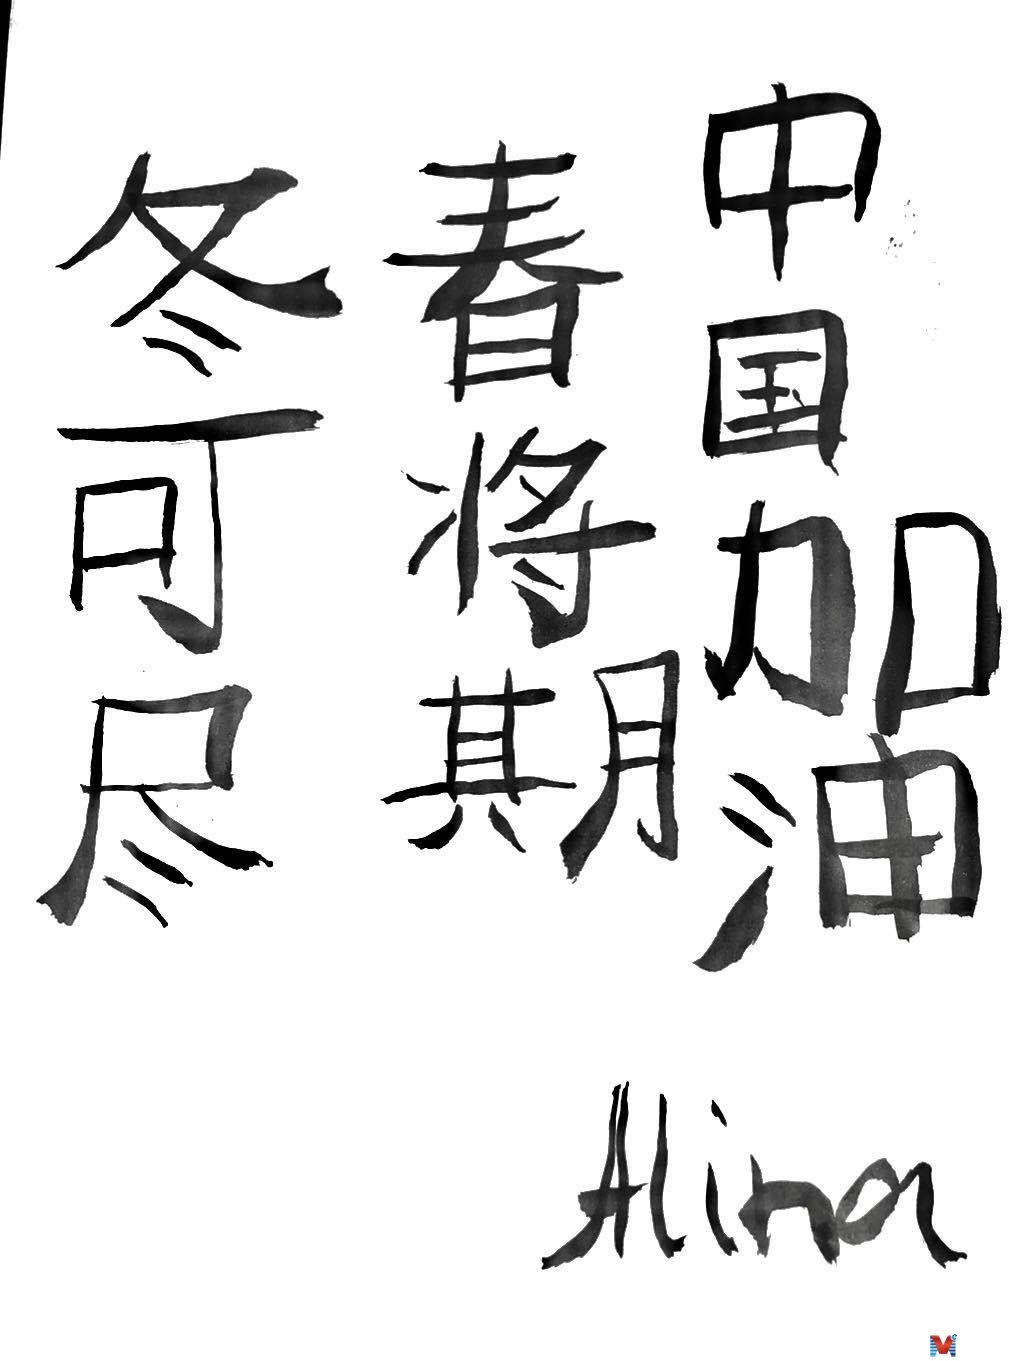 冬可尽
春将期
中国加油
Alina